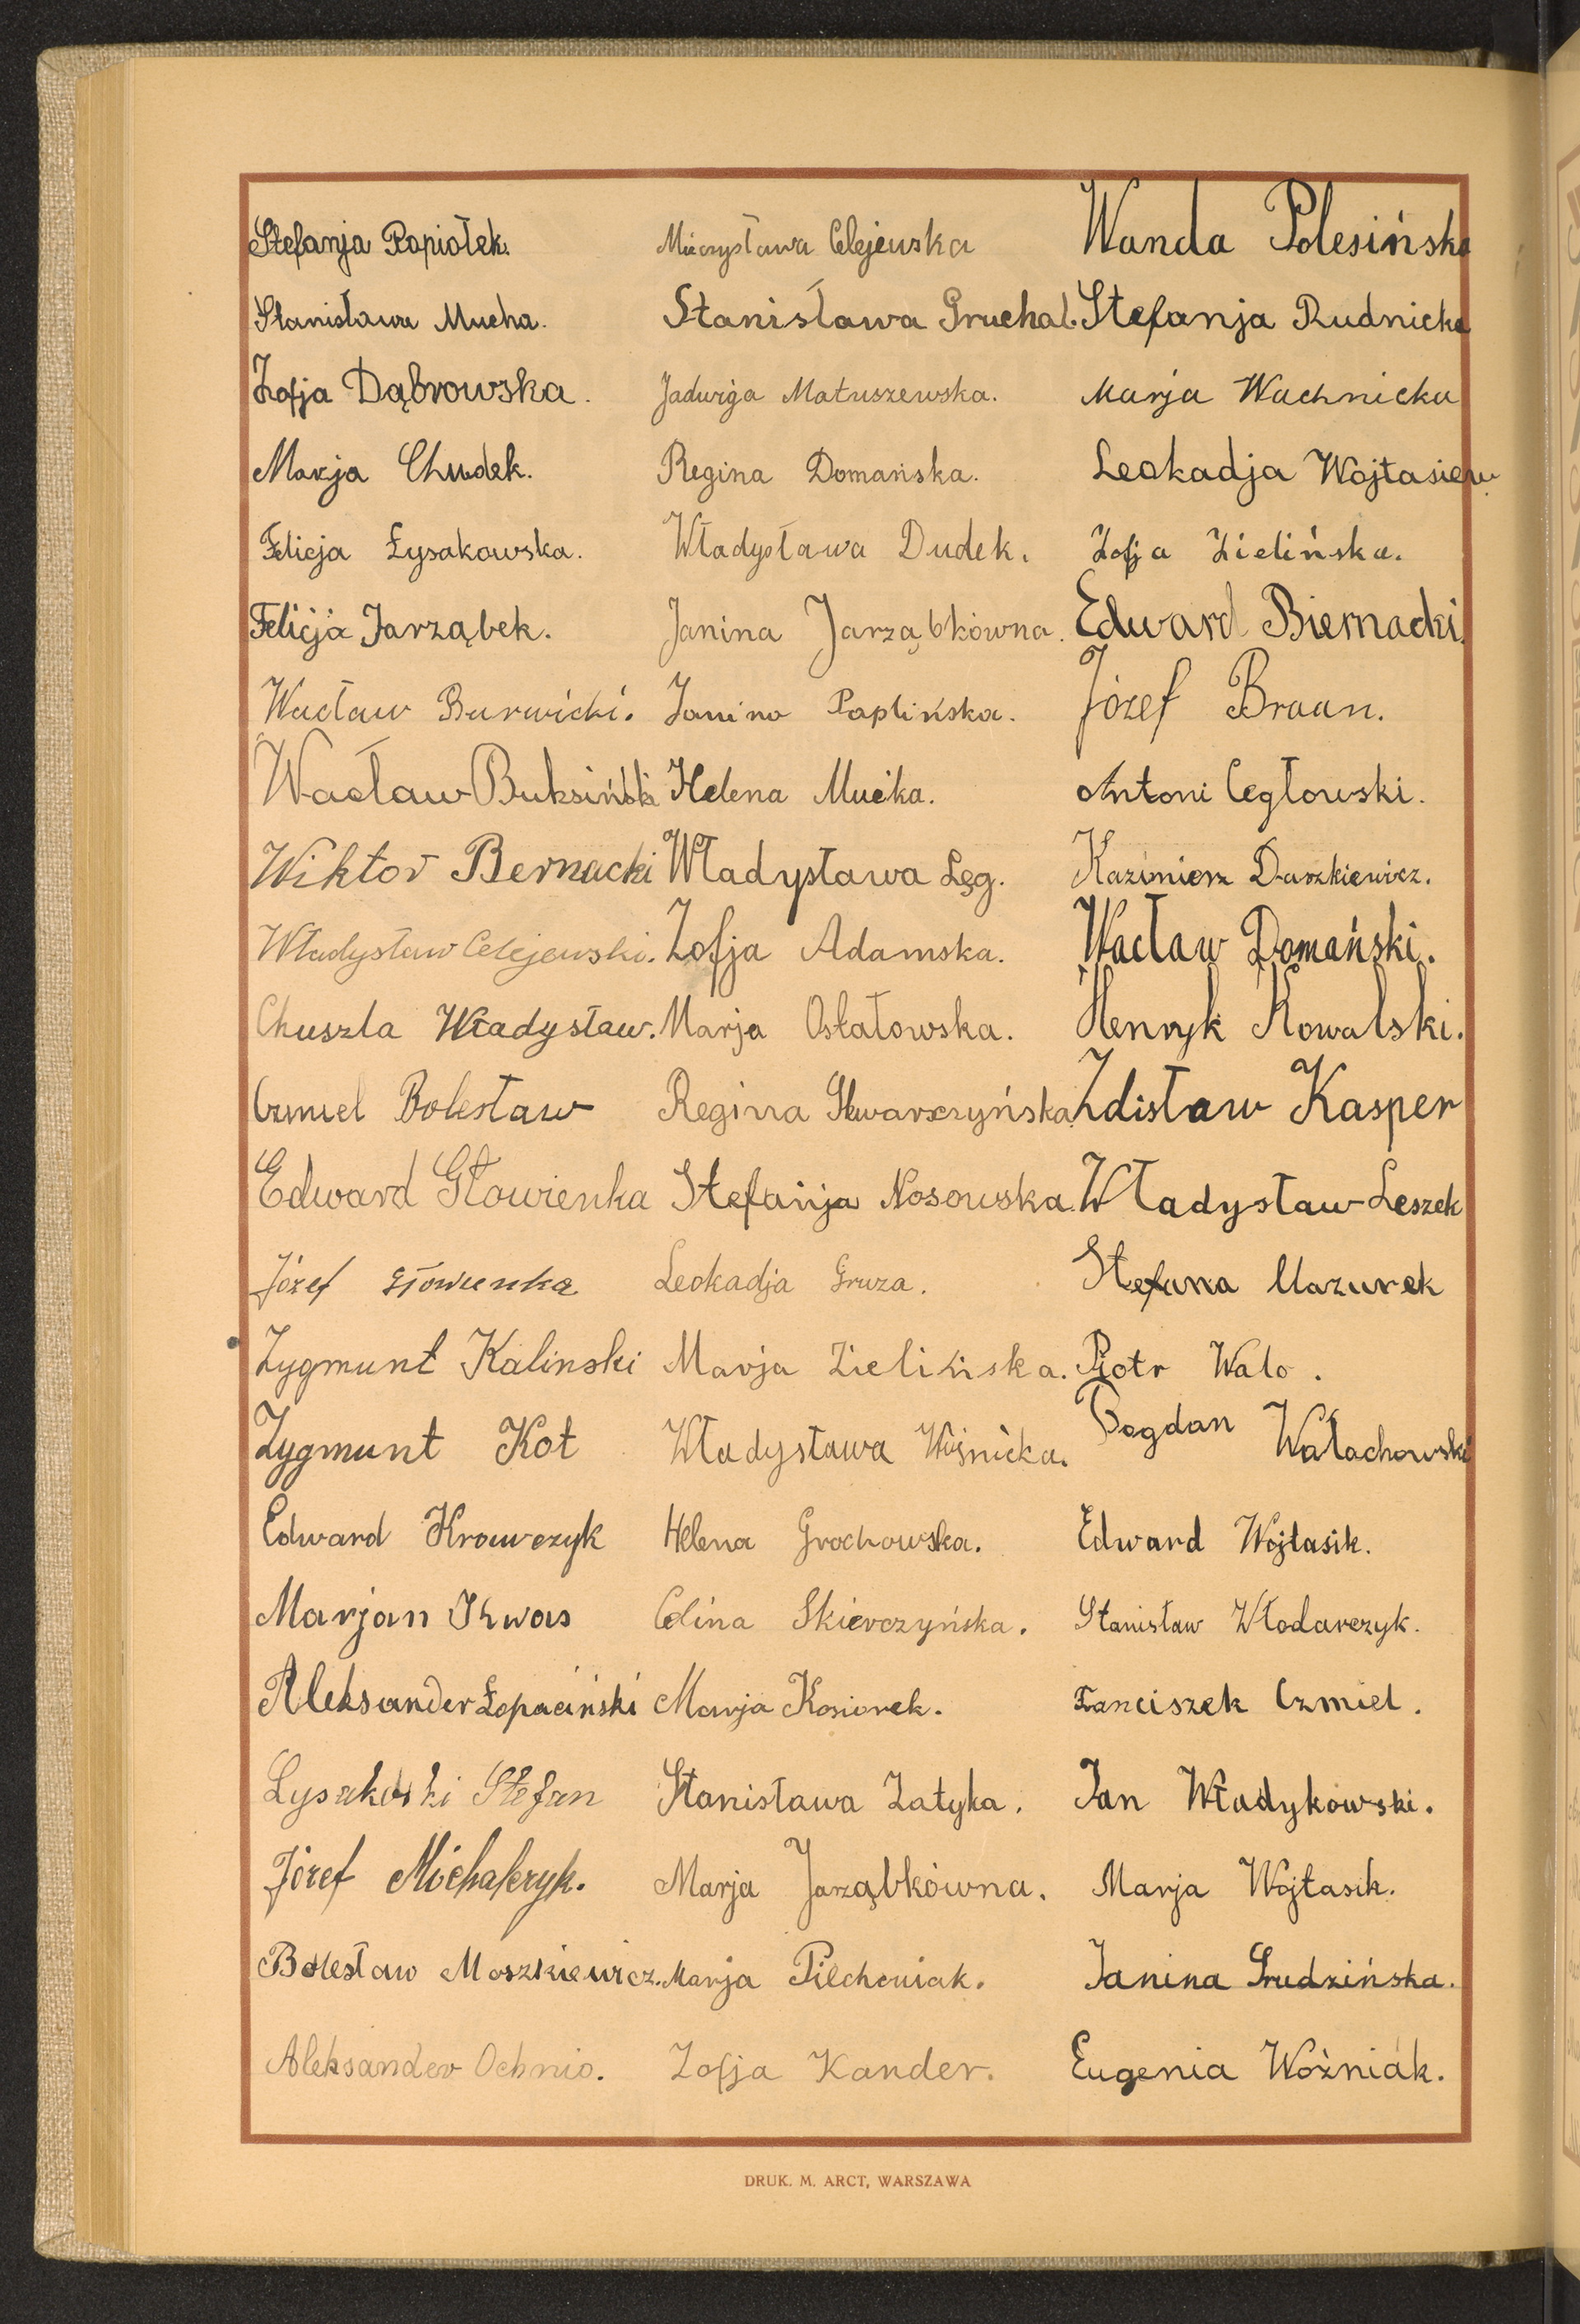 Stefanja Papiołek.
Stanisława Mucha.
Zofja Dąbrowska.
Marja Chudek.
Felicja Łysakowska.
Felicja Jarząbek.
Wacław Burwicki.
Wacław Buksiński
Wiktor Bernacki
Władysław Celejewski.
Chuszla Władysław.
Czmiel Bolesław
Edward Głowienka
Józef Głowienka
Zygmunt Kalinski
Zygmunt Kot
Edward Krawczyk
Marjan Kwas
Aleksander Łopaciński
Łysakoski Stefan
Józef Michalczyk.
Bolesław Moszkiewicz.
Aleksander Ochnio.
Mieczysława Celejewska
Stanisława Gruchal.
Jadwiga Matuszewska.
Regina Domańska.
Władysława Dudek.
Janina Jarząbkówna.
Janina Paplińska.
Helena Mućka.
Władysława Łęg.
Zofja Adamska.
Marja Osłatowska.
Regina Skwarczyńska
Stefanja Nosowska.
Leokadja Gruza.
Marja Zielińska.
Władysława Wiśnicka.
Helena Grochowska.
Celina Skierczyńska.
Marja Kosiorek.
Stanisława Zatyka.
Marja Jarząbkówna.
Marja Pilchowiak.
Zofja Kander.
Wanda Polesińska
Stefanja Rudnicka
Marja Wachnicka
Leokadja Wojtasiew
Zofja Zielińska.
Edward Biernacki.
Józef Braun.
Antoni Cegłowski.
Kazimierz Daszkiewicz.
Wacław Domański.
Henryk Kowalski.
Zdisław Kasper
Władysław Leszek
Stefana Mazurek
Piotr Walo.
Bogdan Wałachowski
Edward Wojtasik.
Stanisław Włodarczyk.
Franciszek Czmiel.
Jan Władykowski.
Marja Wojtasik.
Janina Grudzińska.
Eugenia Woźniak.
DRUK. M. ARCT, WARSZAWA